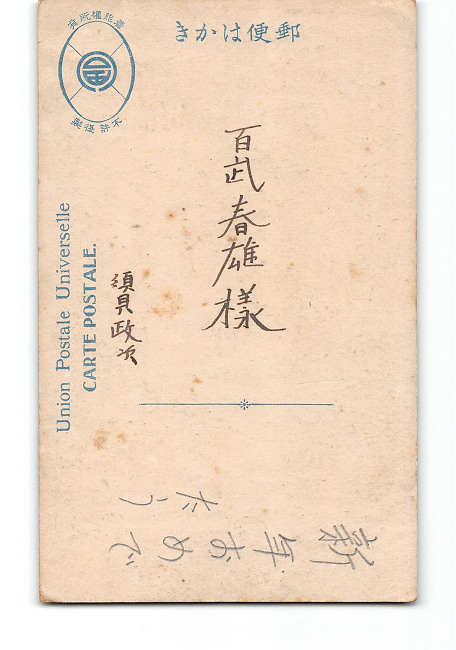 きかは便郵
有所權能藝
不許復製
百武春雄様
須貝政次
Union Postale Universelle
CARTE POSTALE.
新年おめで
たう